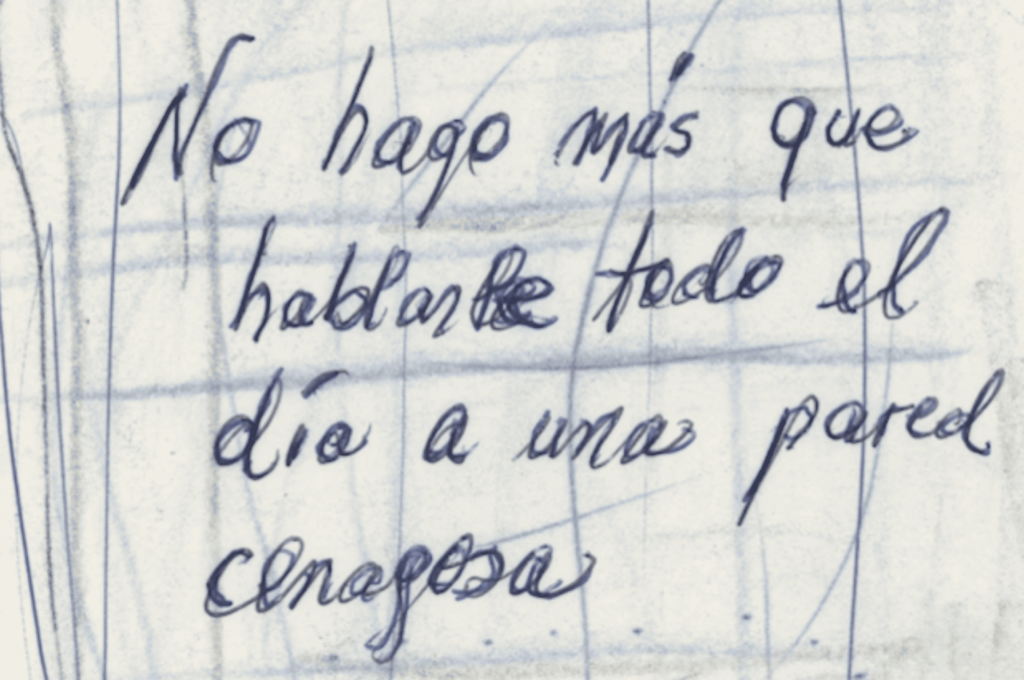 No hago más que
hablarte todo el
día a una pared
cenagosa